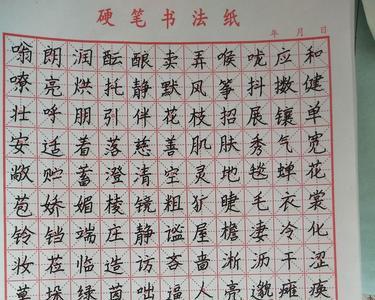 硬笔书法纸
年 月 日
嗡朗润酝酿卖弄喉咙应和
嘹亮烘托静默风筝抖擞健
壮呼朋引伴花枝招展镶单
安适着落慈善肌肤秀气宽
敞贮蓄澄清空灵地毯蝉花
苞娇媚棱镜粗犷睫毛衣裳
铃铛端庄静谧屋檐凄冷化
妆莅临造访吝啬淅沥干涩
草垛绿茵咄逼人亮瘫痪